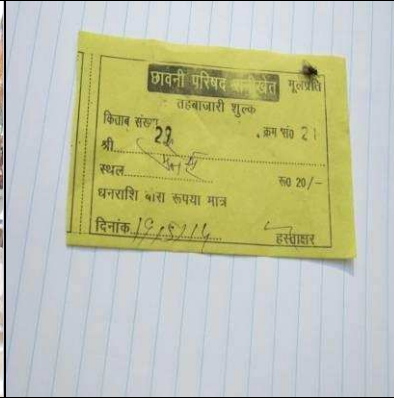 छावनी परिषद रानीखेत मूलप्रति
तहबाजारी शुल्क
किताब संख्या 29 क्रम सं० 21
श्री
स्थल रू0 20/-
धनराशि बीस रूपया मात्र
दिनांक 19/5/14 हस्ताक्षर